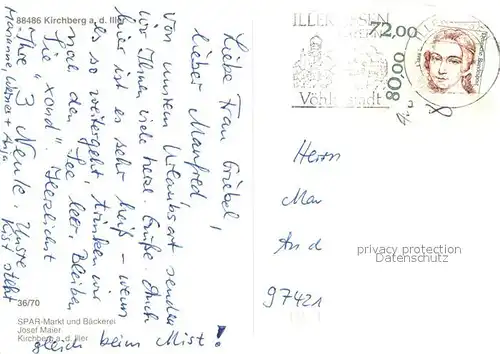 88486 Kirchberg a. d. Iller
Liebe Frau Griebel,
lieber Manfred,
Von unserem Urlaubsort senden
wir Ihnen viele herzl. Grüße. Auch
hier ist es sehr heiß - wenn
es so weitergeht, trinken wir
noch den See leer. Bleiben
Sie "xond". Herzlichst
Ihre "3 Neule". Unsre
Marianne, Werner + Anja
Kist steht
gleich beim Mist!
36/70
SPAR-Markt und Bäckerei
Josef Maier
Kirchberg a. d. Iller
ILLERTISSEN
Vöhlinstadt
72,00
80,00
Herrn
Man
And
97421
privacy protection
Datenschutz